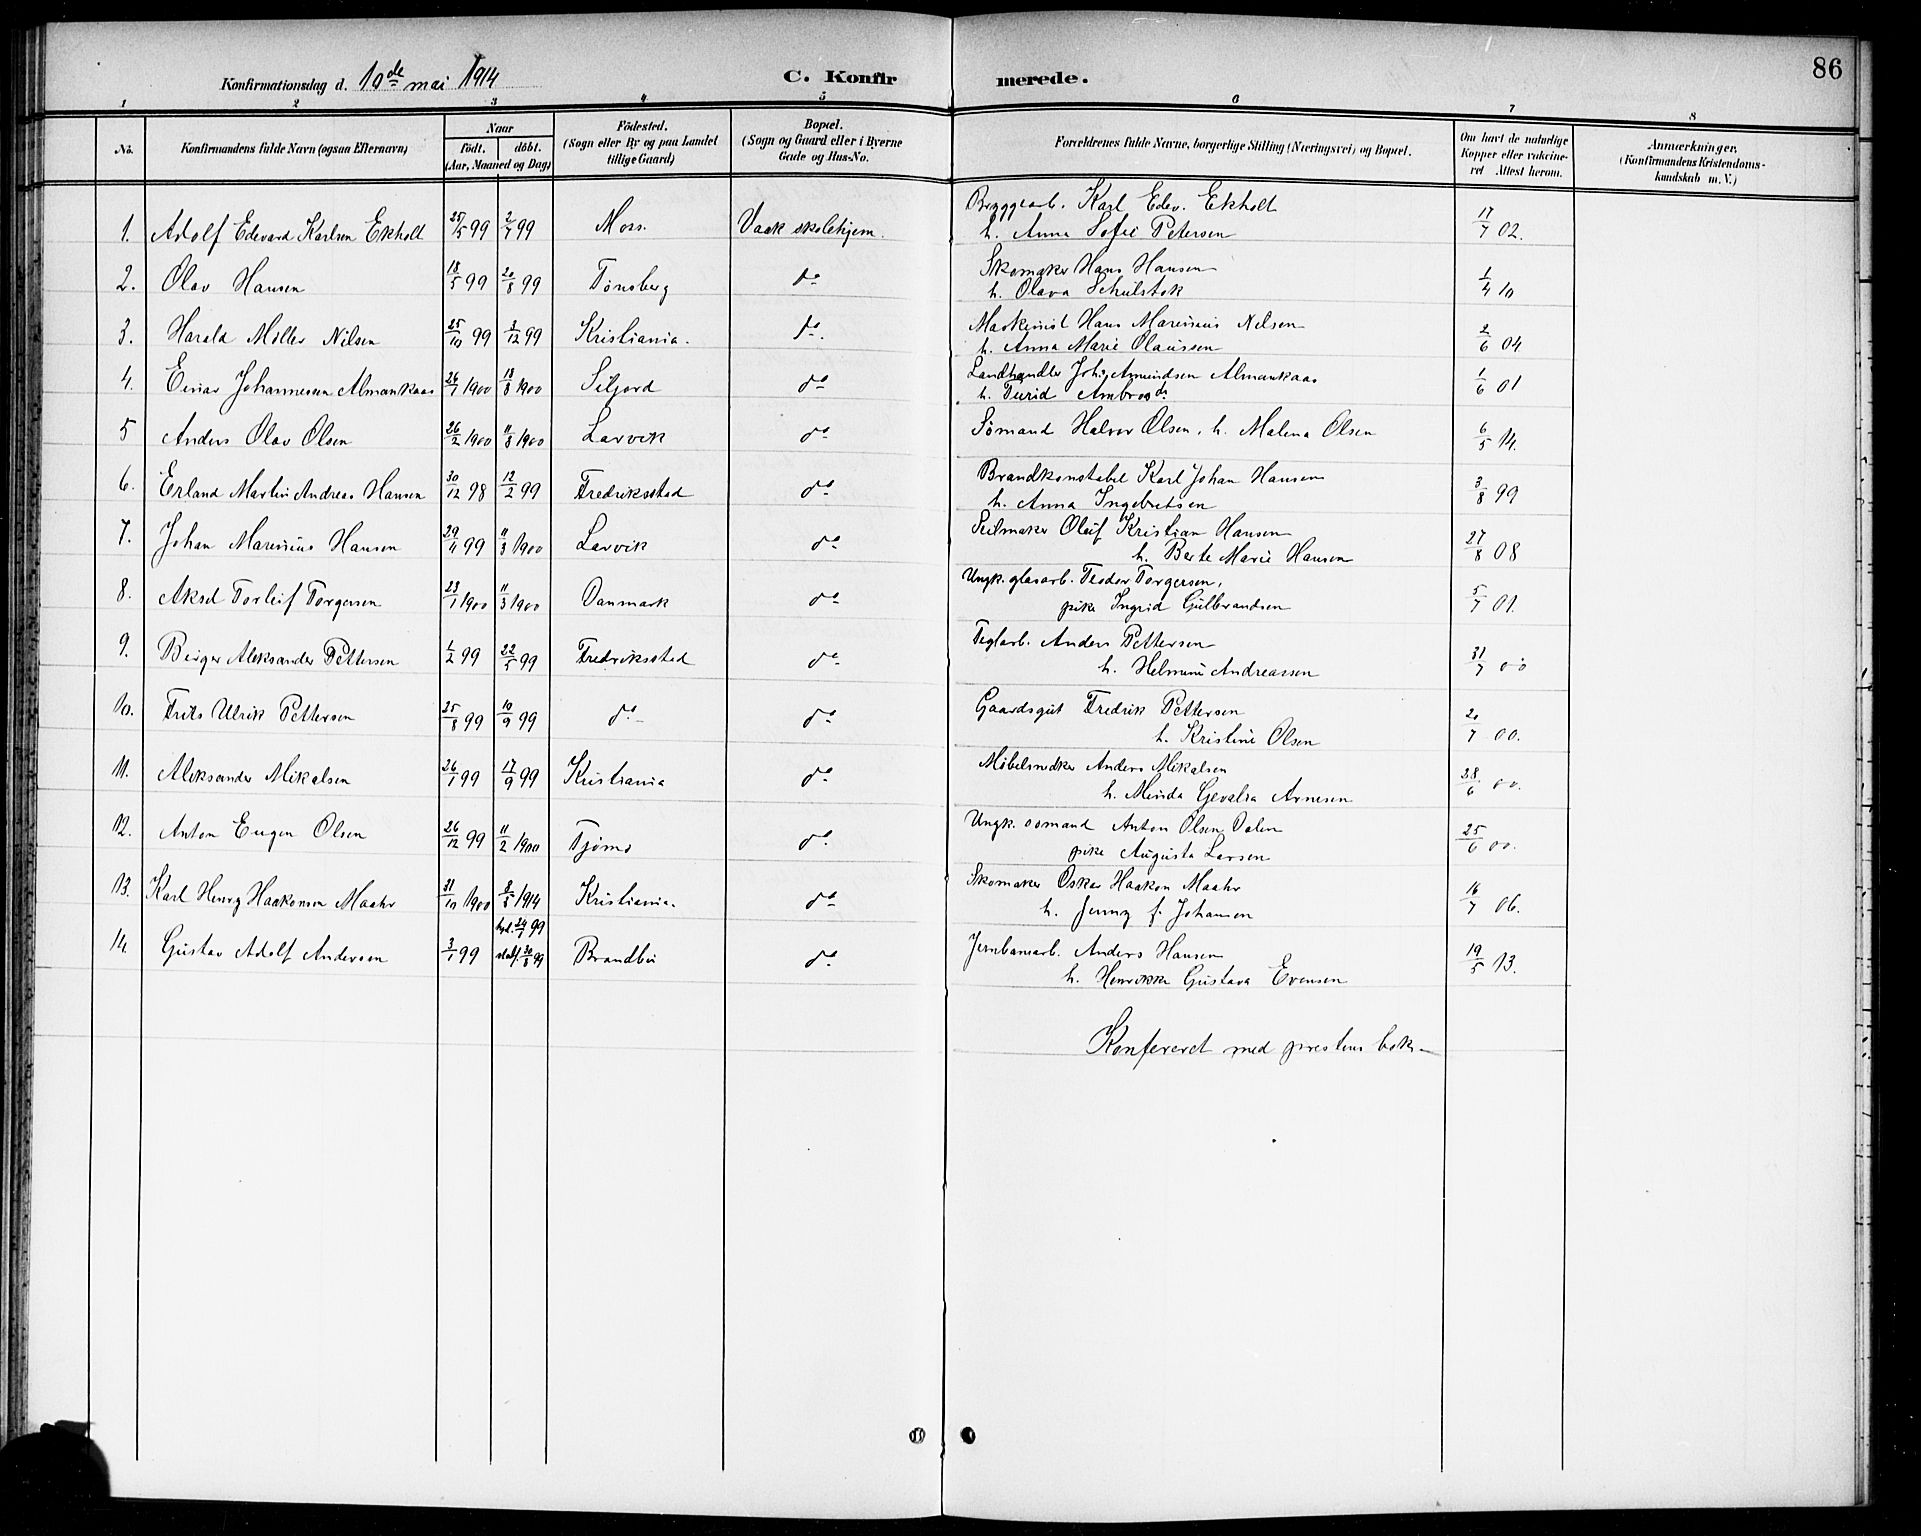 86
Konfirmationsdag d. 10de mai 1914
C. Konfirmerede.
1 2 3 4 5 6 7 8
No. | Konfirmandens fulde Navn (ogsaa Efternavn) | Naar födt. döbt. (Aar, Maaned og Dag) | Födested. (Sogn eller By og paa Landet tillige Gaard) | Bopæl. (Sogn og Gaard eller i Byerne Gade og Hus-No. | Forældrenes fulde Navne, borgerlige Stilling (Næringsvei) og Bopæl. | Om havt de naturlige Kopper eller vakcineret Attest herom. | Anmærkninger, (Konfirmandens Kristendomskundskab m. V.)
1. Adolf Edevard Karlsen Ekholt | 25/5 99 | 2/7 99 | Moss. | Vaak skolehjem. | Bryggearb. Karl Edv. Ekholt h. Anna Sofie Petersen | 17/7 02.
2. Olav Hansen | 18/5 99 | 20/8 99 | Tönsberg | do | Skomaker Hans Hansen h. Olava Schulstok | 1/4 10
3. Harald Möller Nilsen | 25/10 99 | 3/12 99 | Kristiania. | do. | Maskinist Hans Marinius Nilsen h. Anna Marie Olaussen | 2/6 04
4. Einar Johannessen Almankaas | 26/7 1900 | 18/8 1900 | Siljord | do | Landhandler Johs. Amundsen Almankaas h. Turid Ambrosd. | 1/6 01
5 Anders Olav Olsen | 26/2 1900 | 11/8 1900 | Larvik | do | Sömand Halvor Olsen, h. Malena Olsen | 6/5 14.
6. Erland Martin Andreas Hansen | 30/12 98 | 12/2 99 | Fredriksstad | do | Brandkonstabel Karl Johan Hansen h. Anna Ingebretsen | 3/8 99
7. Johan Marinius Hansen | 29/11 99 | 11/3 1900 | Larvik | do | Seilmaker Oluf Kristian Hansen h. Berte Marie Hansen | 27/8 08
8. Aksel Torleif Torgersen | 23/1 1900 | 11/3 1900 | Danmark | do | Ungk. glasarb. Teodor Torgersen, pike Ingrid Gulbrandsen | 5/7 01.
9. Birger Aleksander Pettersen | 1/2 99 | 22/5 99 | Fredriksstad | do | Teglarb. Anders Pettersen h. Helmine Andreassen | 31/7 00
10. Frits Ulrik Pettersen | 25/8 99 | 10/9 99 | do | do | Gaardsgut Fredrik Pettersen h. Kristine Olsen | 20/7 00.
11. Aleksander Mikalsen | 26/1 99 | 17/9 99 | Kristiania | do | Möbelsnedker Anders Mikalsen h. Minda Gevalia Arnesen | 28/6 00.
12. Anton Eugen Olsen | 26/12 99 | 11/2 1900 | Tjömö | do | Ungk. sömand Anton Olsen Dalen pike Augusta Larsen | 25/6 00.
13. Karl Henry Haakonsen Maahr | 31/10 1900 | 8/5 1914 | Kristiania. | do | Skomaker Oskar Haakon Maahr h. Jenny f. Johansen | 16/7 06.
14. Gustav Adolf Andersen | 3/1 99 | hjd. 24/1 99 stadf. 30/8 99 | Brandbu | do | Jernbanearb. Anders Hansen h. Henrikke Gustava Evensen | 19/5 13.
Konfereret med prestens bok.